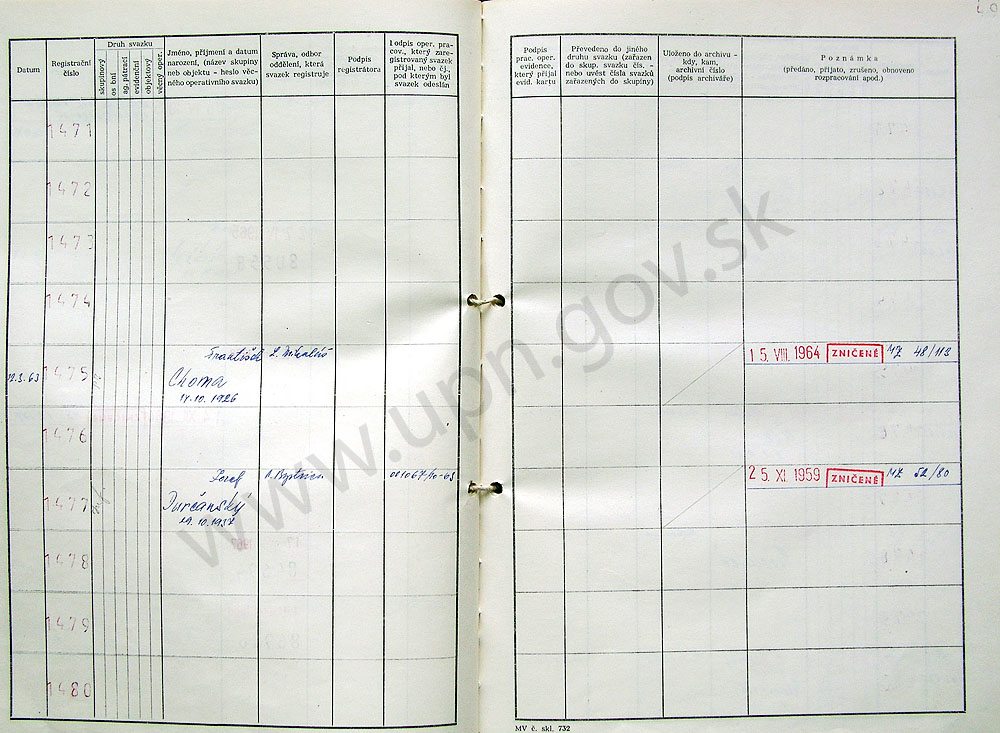 Datum
Registrační
číslo
Druh svazku
skupinový
osobní
ag. pátrací
evidenční
objektový
věcný oper.
Jméno, příjmení a datum
narození, (název skupiny
neb objektu - heslo věc-
ného operativního svazku)
Správa, odbor
oddělení, která
svazek registruje
Podpis
registrátora
Podpis oper. prac-
cov., který zare-
gistrovaný svazek
přijal, nebo čj.,
pod kterým byl
svazek odeslán
Podpis
prac. oper.
evidence,
který přijal
evid. kartu
Převedeno do jiného
druhu svazku (zařazen
do skup. svazku čís. -
nebo uvést čísla svazků
zařazených do skupiny)
Uloženo do archivu -
kdy, kam,
archivní číslo
(podpis archiváře)
Poznámka
(předáno, přijato, zrušeno, obnoveno
rozpracování apod.)
1471
1472
1473
1474
1475
František
Choma
14.10.1926
L. Mikuláš
15. VIII. 1964 ZNIČENÉ MZ 48/113
1476
1477
Jozef
Ďurčanský
19.10.1937
25. XI. 1959 ZNIČENÉ MZ 52/80
1478
1479
1480
MV č. skl. 732
www.upn.gov.sk